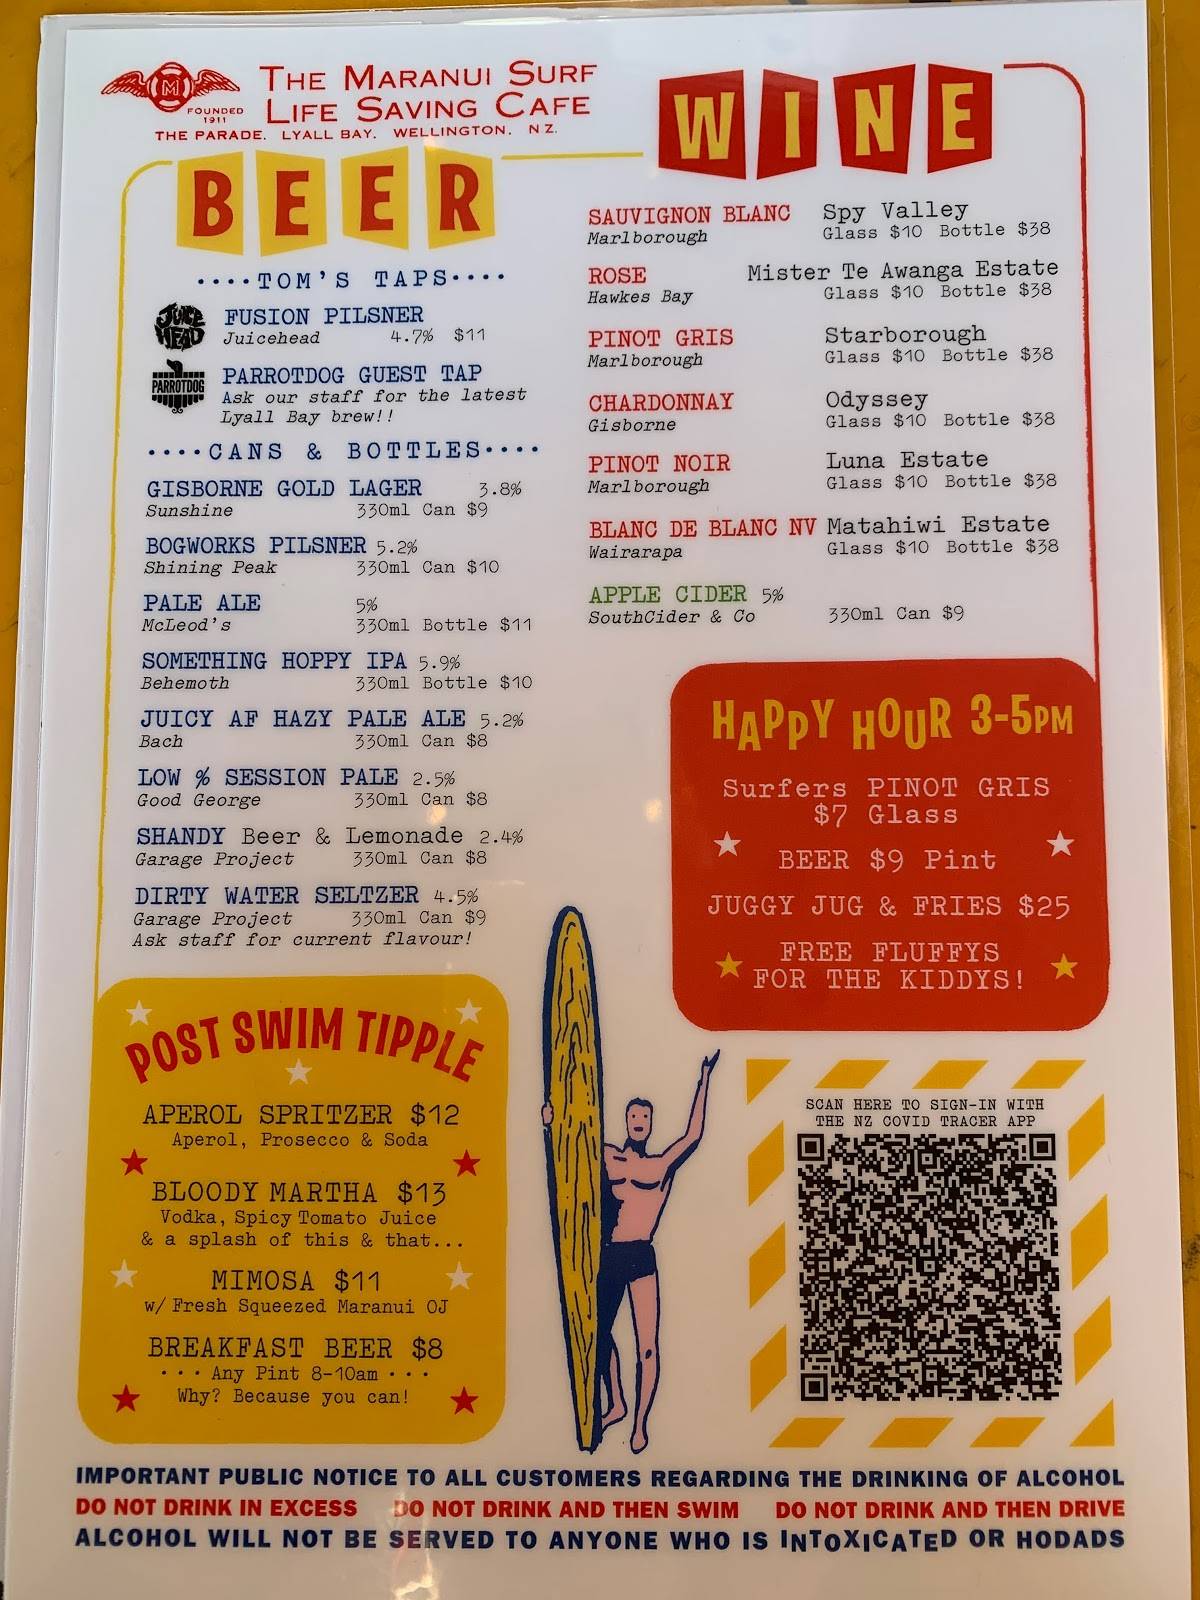 THE MARANUI SURF
LIFE SAVING CAFE
M
FOUNDED
1911
THE PARADE. LYALL BAY. WELLINGTON. NZ.
BEER
····TOM'S TAPS····
JUICE
HEAD
FUSION PILSNER
Juicehead 4.7% $11
PARROTDOG
PARROTDOG GUEST TAP
Ask our staff for the latest
Lyall Bay brew!!
····CANS & BOTTLES····
GISBORNE GOLD LAGER 3.8%
Sunshine 330ml Can $9
BOGWORKS PILSNER 5.2%
Shining Peak 330ml Can $10
PALE ALE 5%
McLeod's 330ml Bottle $11
SOMETHING HOPPY IPA 5.9%
Behemoth 330ml Bottle $10
JUICY AF HAZY PALE ALE 5.2%
Bach 330ml Can $8
LOW % SESSION PALE 2.5%
Good George 330ml Can $8
SHANDY Beer & Lemonade 2.4%
Garage Project 330ml Can $8
DIRTY WATER SELTZER 4.5%
Garage Project 330ml Can $9
Ask staff for current flavour!
POST SWIM TIPPLE
APEROL SPRITZER $12
Aperol, Prosecco & Soda
BLOODY MARTHA $13
Vodka, Spicy Tomato Juice
& a splash of this & that...
MIMOSA $11
w/ Fresh Squeezed Maranui OJ
BREAKFAST BEER $8
··· Any Pint 8-10am ···
Why? Because you can!
WINE
SAUVIGNON BLANC Spy Valley
Marlborough Glass $10 Bottle $38
ROSE Mister Te Awanga Estate
Hawkes Bay Glass $10 Bottle $38
PINOT GRIS Starborough
Marlborough Glass $10 Bottle $38
CHARDONNAY Odyssey
Gisborne Glass $10 Bottle $38
PINOT NOIR Luna Estate
Marlborough Glass $10 Bottle $38
BLANC DE BLANC NV Matahiwi Estate
Wairarapa Glass $10 Bottle $38
APPLE CIDER 5%
SouthCider & Co 330ml Can $9
HAPPY HOUR 3-5PM
Surfers PINOT GRIS
$7 Glass
BEER $9 Pint
JUGGY JUG & FRIES $25
FREE FLUFFYS
FOR THE KIDDYS!
SCAN HERE TO SIGN-IN WITH
THE NZ COVID TRACER APP
IMPORTANT PUBLIC NOTICE TO ALL CUSTOMERS REGARDING THE DRINKING OF ALCOHOL
DO NOT DRINK IN EXCESS DO NOT DRINK AND THEN SWIM DO NOT DRINK AND THEN DRIVE
ALCOHOL WILL NOT BE SERVED TO ANYONE WHO IS INTOXICATED OR HODADS